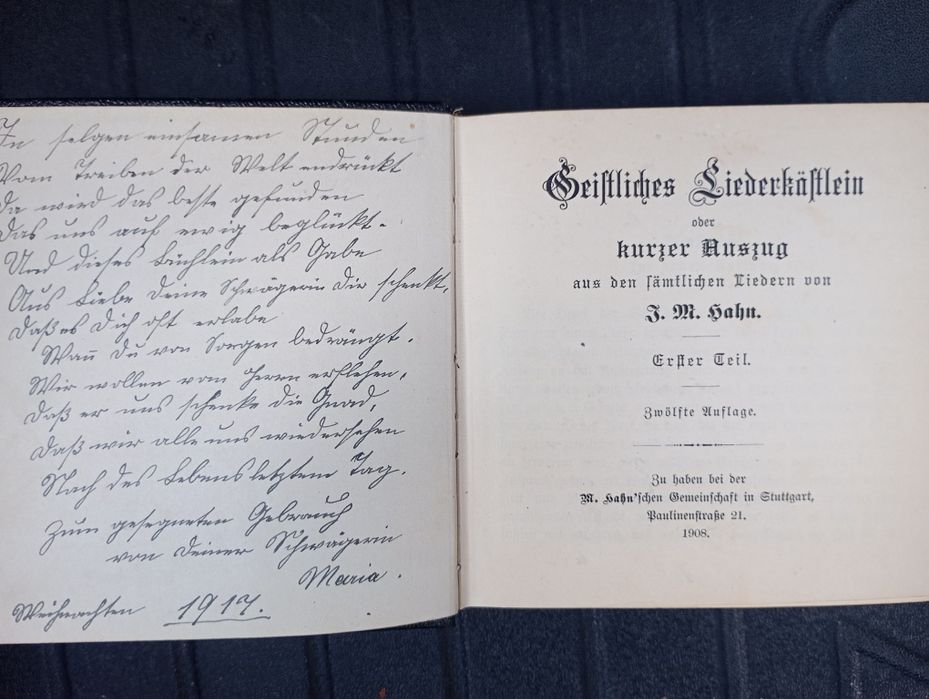 In selgen einsamen Stunden
Vom Treiben der Welt endrückt
Da wird das beste gefunden
Das uns auf ewig beglückt.
Und dieses Büchlein als Gabe
Aus Liebe Deine Schwägerin Dir schenkt,
Daß es Dich oft erlabe
Wan̅ Du von Sorgen bedrängt.
Wir wollen vom Herrn erflehen,
Daß er uns schenke die Gnad,
Daß wir alle uns wiedersehen
Nach des Lebens letztem Tag.
Zum gesegneten Gebrauch
von Deiner Schwägerin
Maria.
Weihnachten 1917.
Geistliches Liederkästlein
oder
kurzer Auszug
aus den sämtlichen Liedern von
J. M. Hahn.
Erster Teil.
Zwölfte Auflage.
Zu haben bei der
M. Hahn'schen Gemeinschaft in Stuttgart,
Paulinenstraße 21.
1908.